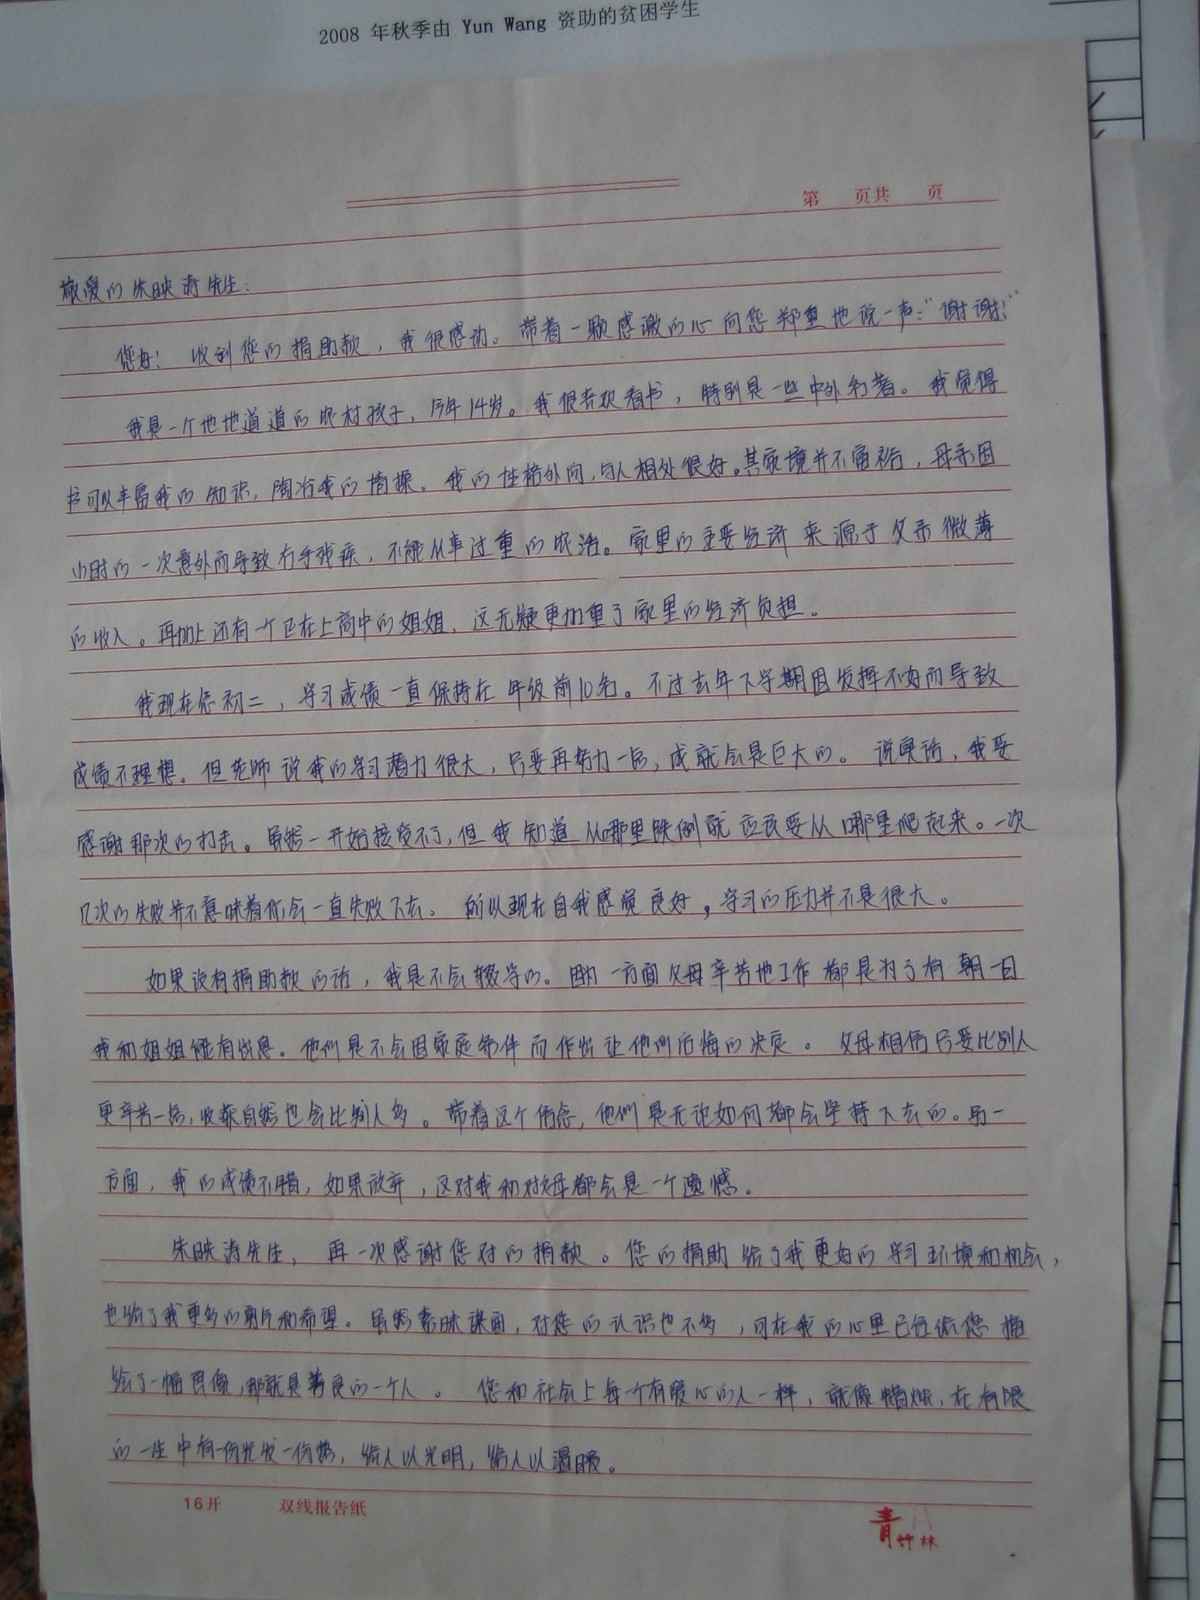 2008 年秋季由 Yun Wang 资助的贫困学生
第 页共 页
敬爱的朱映涛先生:
您好! 收到您的捐助款,我很感动。带着一颗感激的心向您郑重地说一声:“谢谢!”
我是一个地地道道的农村孩子,今年14岁。我很喜欢看书,特别是一些中外名著。我觉得
书可以丰富我的知识,陶冶我的情操。我的性格外向,与人相处很好。其家境并不富裕,母亲因
小时的一次意外而导致右手残疾,不能从事过重的农活。家里的主要经济来源于父亲微薄
的收入。再加上还有一个正在上高中的姐姐,这无疑更加重了家里的经济负担。
我现在念初二,学习成绩一直保持在年级前10名。不过去年下学期因发挥不好而导致
成绩不理想。但老师说我的学习潜力很大,只要再努力一点,成就会是巨大的。说真话,我要
感谢那次的打击。虽然一开始接受不了,但我知道从哪里跌倒就应该要从哪里爬起来。一次
几次的失败并不意味着你会一直失败下去。所以现在自我感觉良好,学习的压力并不是很大。
如果没有捐助款的话,我是不会辍学的。因为一方面父母辛苦地工作都是为了有朝一日
我和姐姐能有出息。他们是不会因家庭条件而作出让他们后悔的决定。父母相信只要比别人
更辛苦一点,收获自然也会比别人多。带着这个信念,他们是无论如何都会坚持下去的。另一
方面,我的成绩不错,如果放弃,这对我和父母都会是一个遗憾。
朱映涛先生,再一次感谢您对的捐款。您的捐助给了我更好的学习环境和机会,
也给了我更多的动力和希望。虽然素昧谋面,对您的认识也不多,可在我的心里已经依您描
绘了一幅肖像,那就是善良的一个人。您和社会上每一个有爱心的人一样,就像蜡烛,在有限
的一生中有一份光发一份热,给人以光明,给人以温暖。
16开 双线报告纸
青竹林